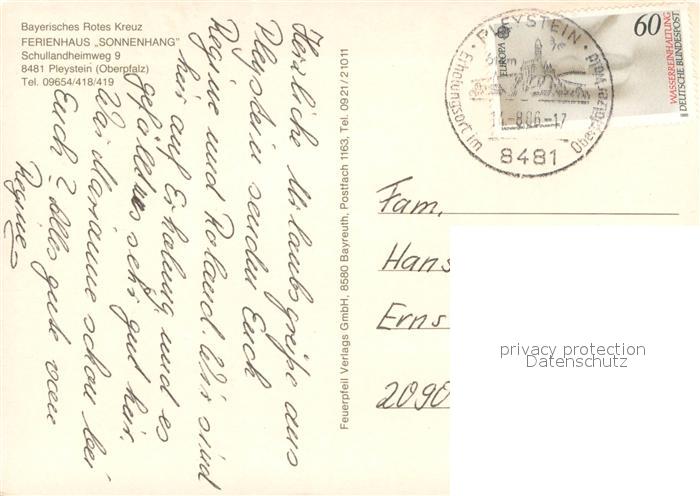 Bayerisches Rotes Kreuz
FERIENHAUS „SONNENHANG"
Schullandheimweg 9
8481 Pleystein (Oberpfalz)
Tel. 09654/418/419
Herzliche Urlaubsgrüße aus
Pleystein senden Euch
Regine und Roland. Wir sind
hier auf Erholung und es
gefällt uns sehr gut hier.
War Marianne schon bei
Euch? Alles gute von
Regine
Feuerpfeil Verlags GmbH, 8580 Bayreuth, Postfach 1163, Tel. 0921/21011
PLEYSTEIN
Erholungsort im Oberpfälzer Wald
8.86-17
8481
EUROPA
60
WASSERREINHALTUNG
DEUTSCHE BUNDESPOST
Fam.
Hans
Erns
2090
privacy protection
Datenschutz